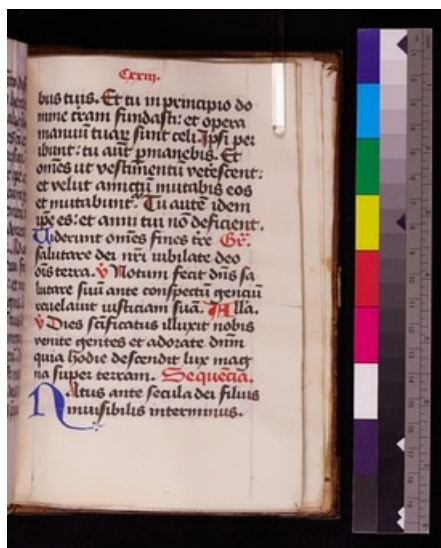 Cxxiij.
bus tuis. Et tu in principio do
mine t̄ram fundasti: et opera
manuū tuaꝝ sunt celi. Ipsi per
ibunt: tu aūt ꝑmanebis. Et
om̄es ut vestimentū veterscent:
et velut amictū mutabis eos
et mutabunt̄. Tu autē idem
ip̄e es: et anni tui nō deficient.
Uiderunt om̄es fines t̄re Gr̄.
salutare dei nr̄i iubilate deo
oīs terra. ℣ Notum fecit dn̄s sa
lutare suū ante conspectū genciū
reuelauit iusticiam suā. Alla.
℣ Dies sc̄ificatus illuxit nobis
venite gentes et adorate dnm̄
quia hodie descendit lux mag
na super terram. Sequēcia.
Natus ante secula dei filius
inuisibilis interminus.